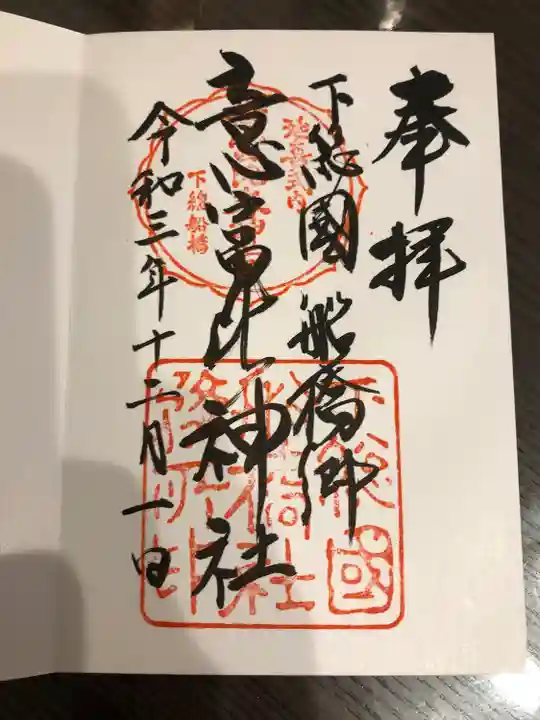 奉拝
下総國船橋郷
意富比神社
令和三年十二月一日
延喜式内
下總船橋
下総國